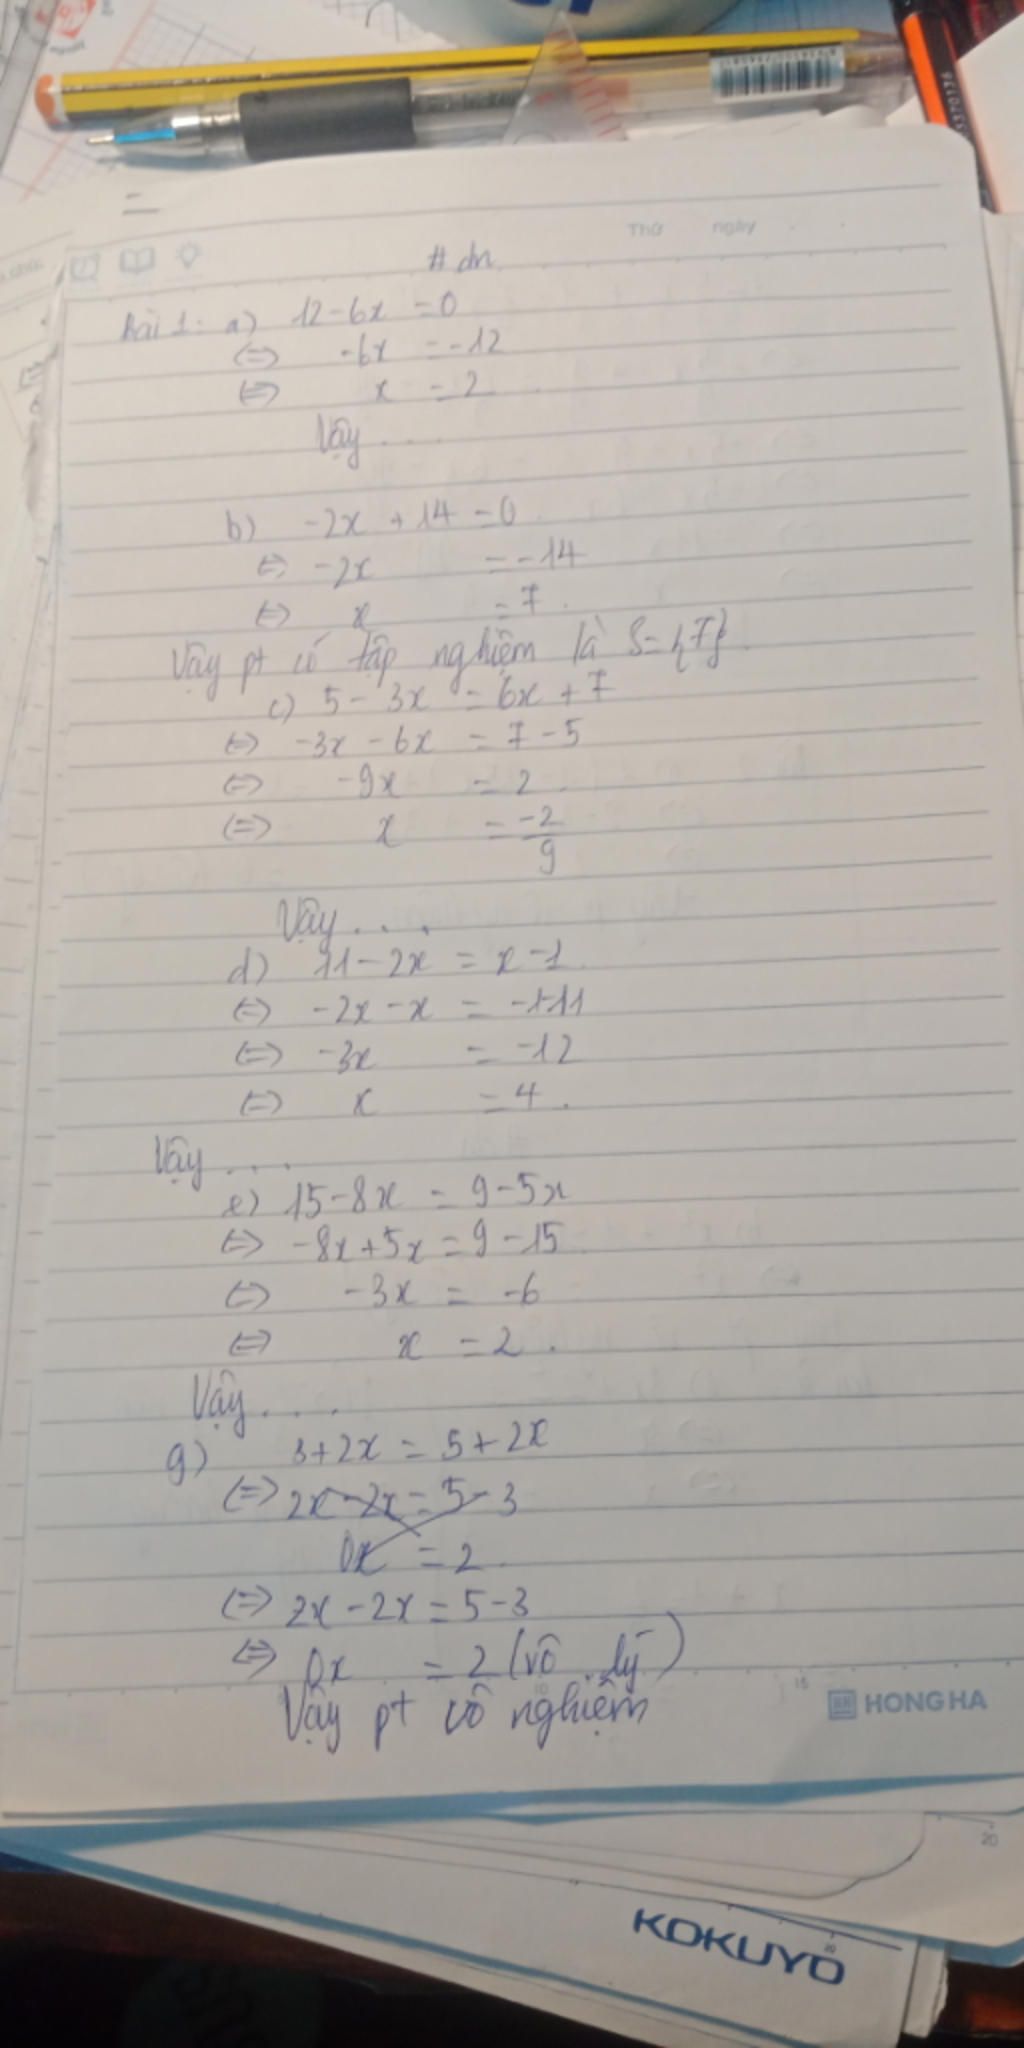 Thứ ngày
# dn
Bài 1: a) 12 - 6x = 0
<=> -6x = -12
<=> x = 2
Vậy ....
b) -2x + 14 = 0
<=> -2x = -14
<=> x = 7.
Vậy pt có tập nghiệm là S = {7}.
c) 5 - 3x = 6x + 7
<=> -3x - 6x = 7 - 5
<=> -9x = 2
<=> x = -2/9
Vậy ....
d) 11 - 2x = x - 1
<=> -2x - x = -1-11
<=> -3x = -12
<=> x = 4.
Vậy ....
e) 15 - 8x = 9 - 5x
<=> -8x + 5x = 9 - 15
<=> -3x = -6
<=> x = 2.
Vậy ....
g) 3 + 2x = 5 + 2x
<=> 2x - 2x = 5 - 3
0x = 2
<=> 2x - 2x = 5 - 3
<=> 0x = 2 (vô lý)
Vậy pt vô nghiệm
HONG HA
KOKUYO